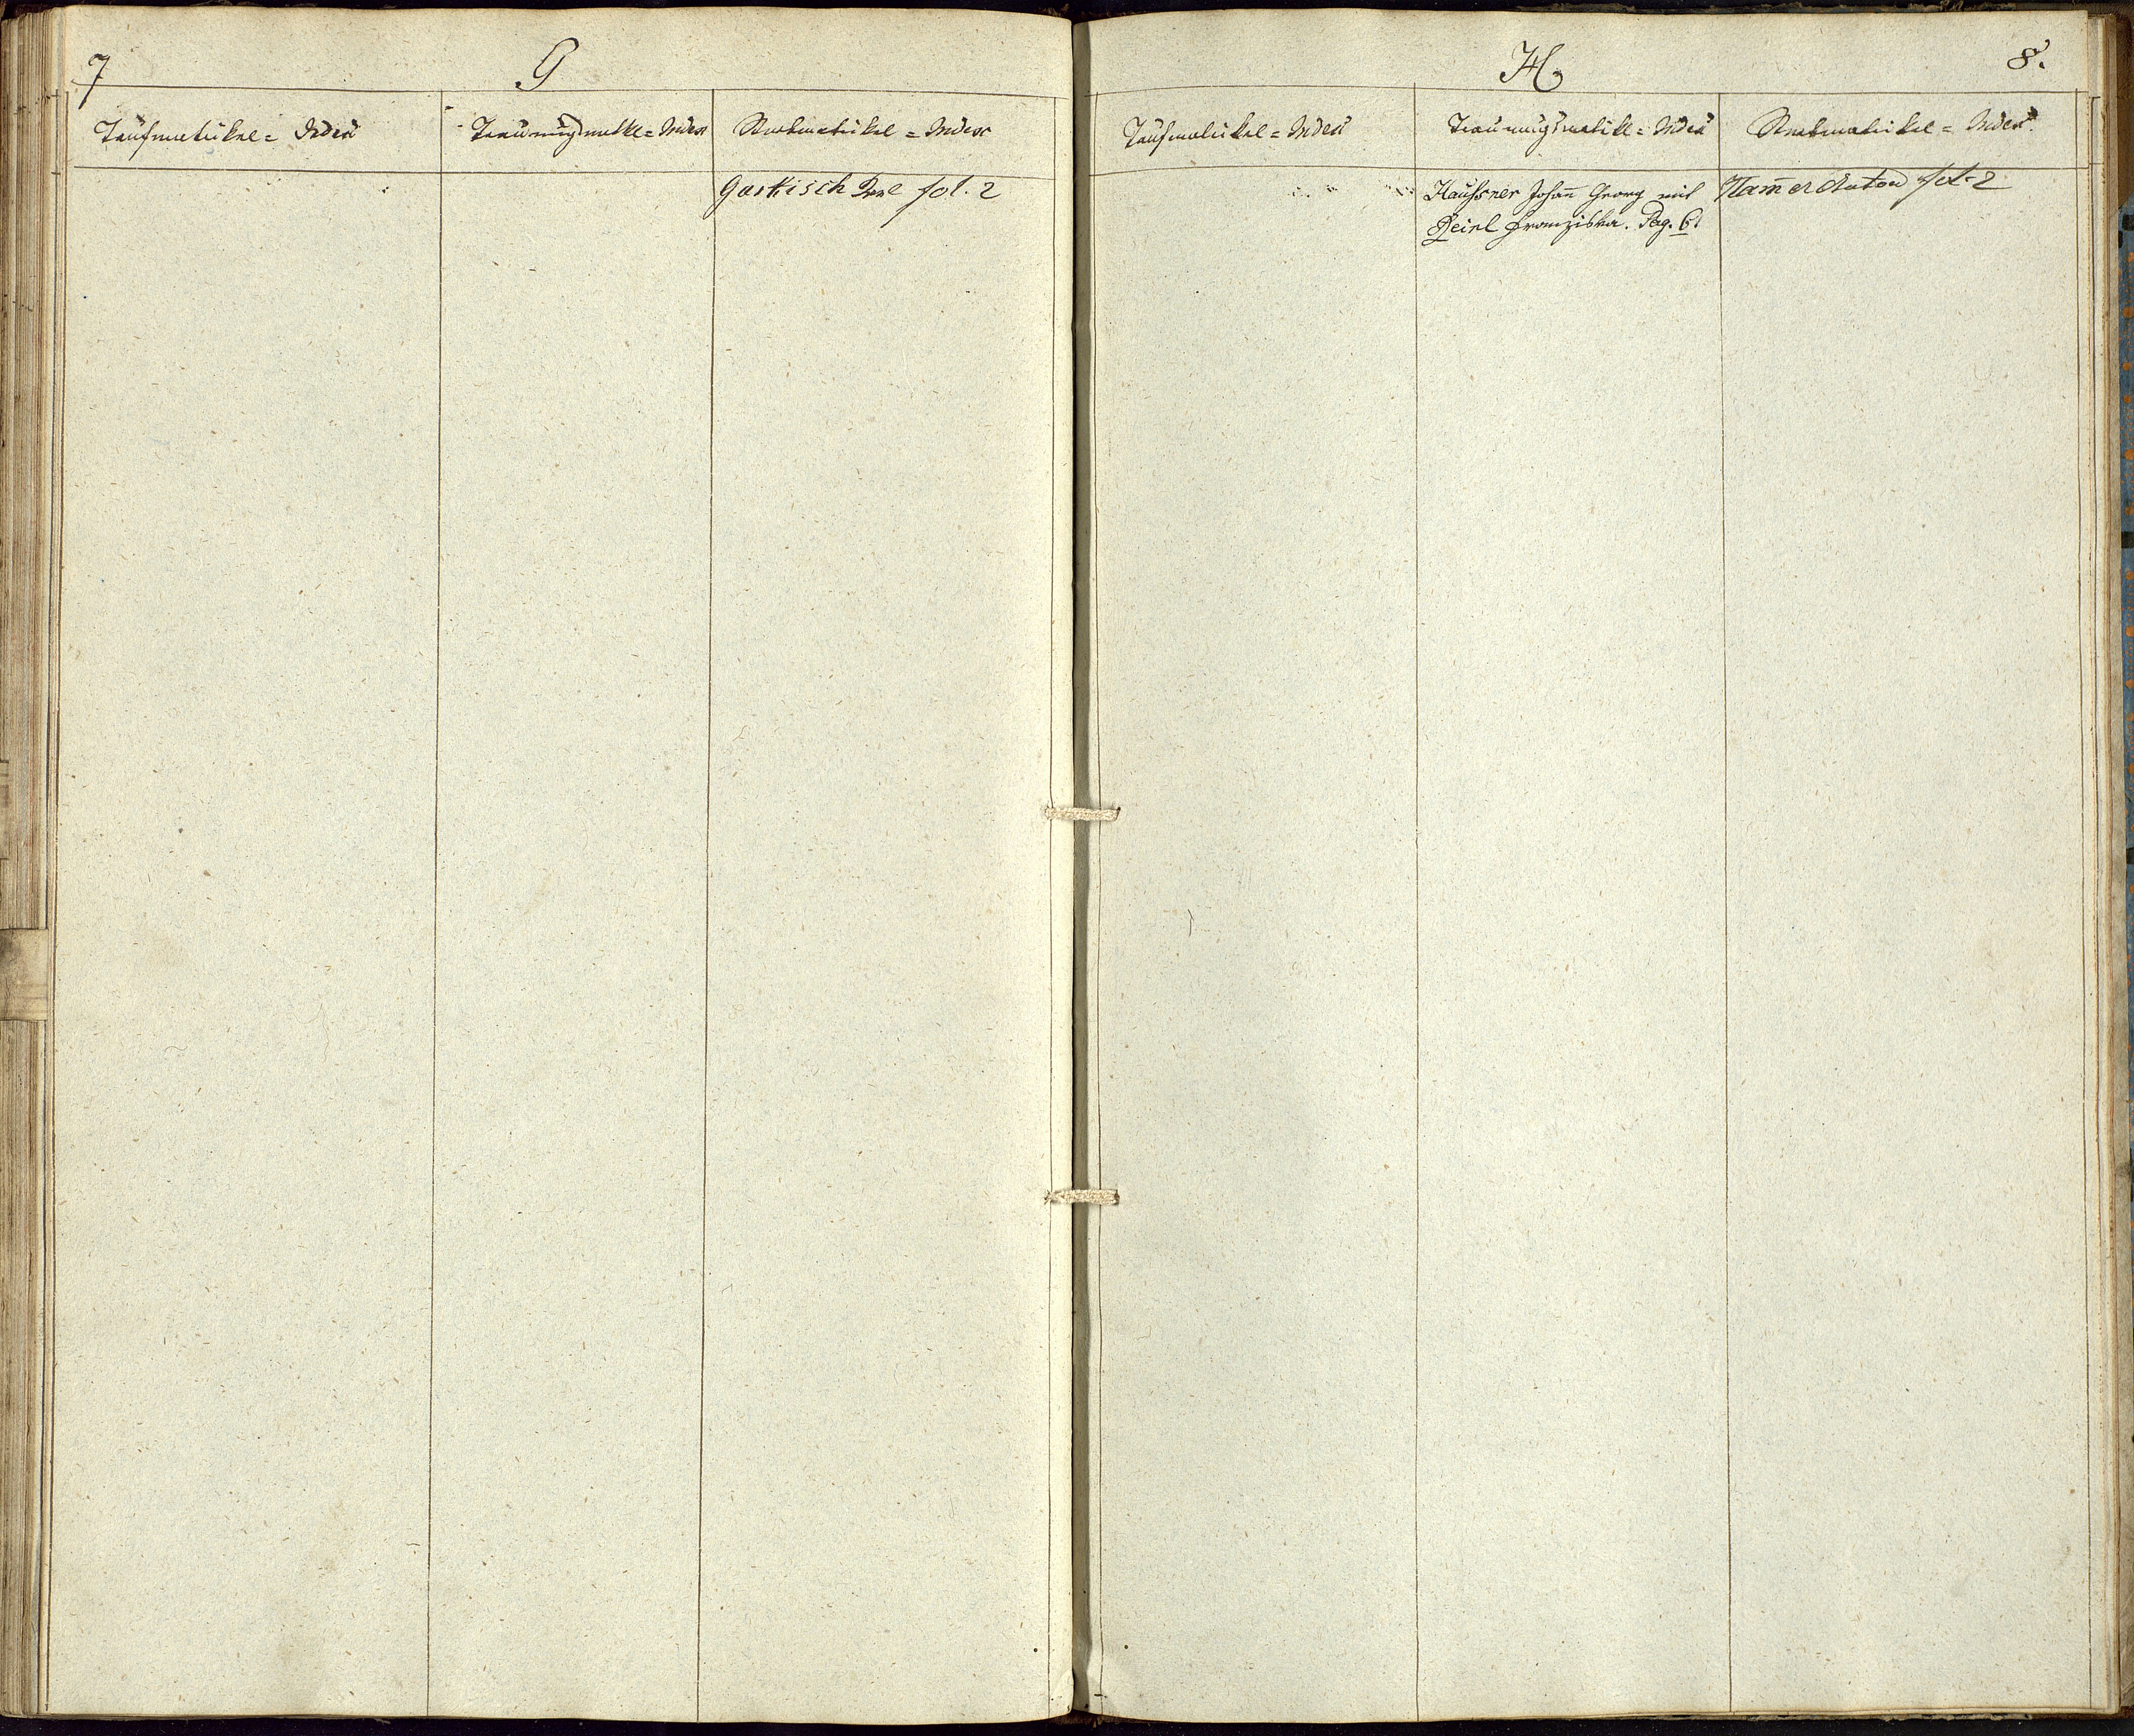 7
G
Taufmatrikel = Index
Trauungsmatkl = Index
Sterbmatrikel = Index
Gartisch fol. 2
H
8.
Taufmatrikel = Index
Trauungsmatikl = Index
Sterbmatrikel = Index.
Haußner Johañ Georg mit
Beirl Franziska. Pag. 61
Ham̃er Anton fol. 2